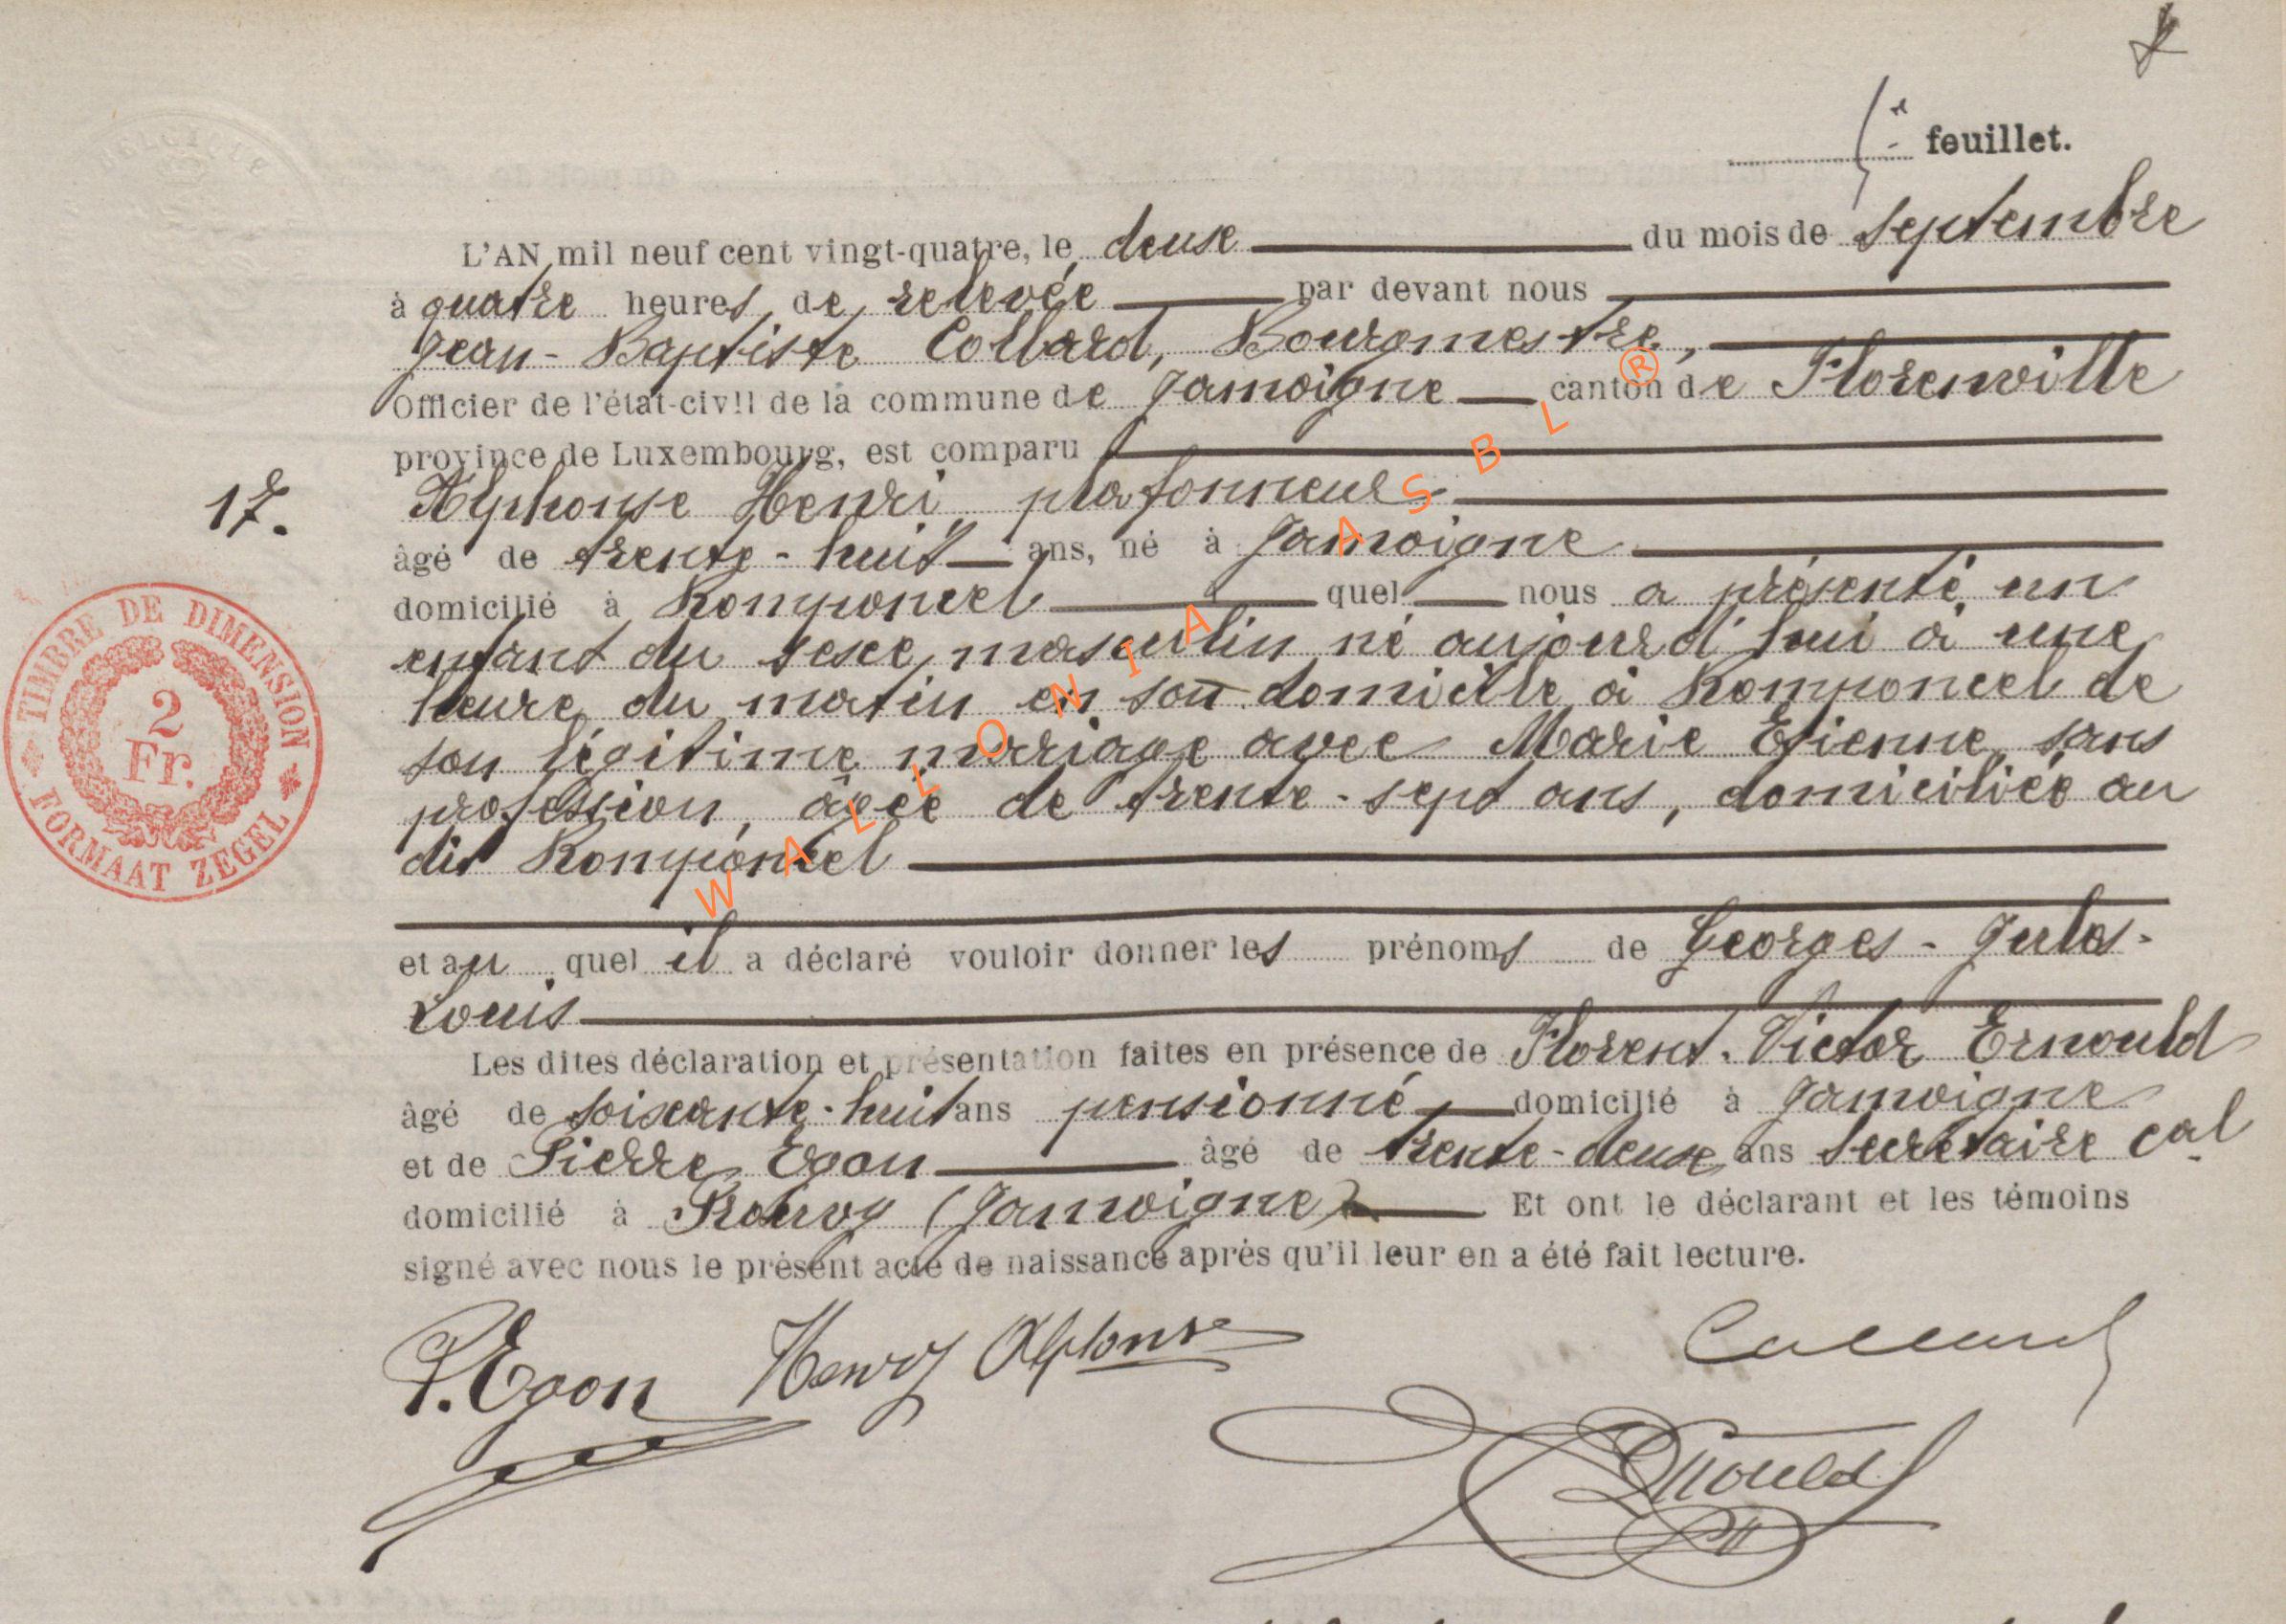 feuillet.
L'AN mil neuf cent vingt-quatre, le deux du mois de septembre
à quatre heures de relevée par devant nous
Jean-Baptiste Collard, Bourgmestre,
Officier de l'état-civil de la commune de Jamoigne canton de Florenville
province de Luxembourg, est comparu
17.
Alphonse Henri, plafonneur
âgé de trente-huit ans, né à Jamoigne
domicilié à Romponcel quel nous a présenté un
enfant du sexe masculin né aujourd'hui à une
heure du matin en son domicile à Romponcel de
son légitime mariage avec Marie Etienne, sans
profession, âgée de trente-sept ans, domiciliée au
dit Romponcel
et au quel il a déclaré vouloir donner les prénoms de Georges-Jules-
Louis
Les dites déclaration et présentation faites en présence de Florent-Victor Ernould
âgé de soixante-huit ans pensionné domicilié à Jamoigne
et de Pierre Egon âgé de trente-deux ans secrétaire cal
domicilié à Prouvy (Jamoigne) Et ont le déclarant et les témoins
signé avec nous le présent acte de naissance après qu'il leur en a été fait lecture.
P. Egon Henry Alphonse Collard
Ernould
TIMBRE DE DIMENSION
2
Fr.
FORMAAT ZEGEL
BELGIQUE
WALLONIA ASBL ®